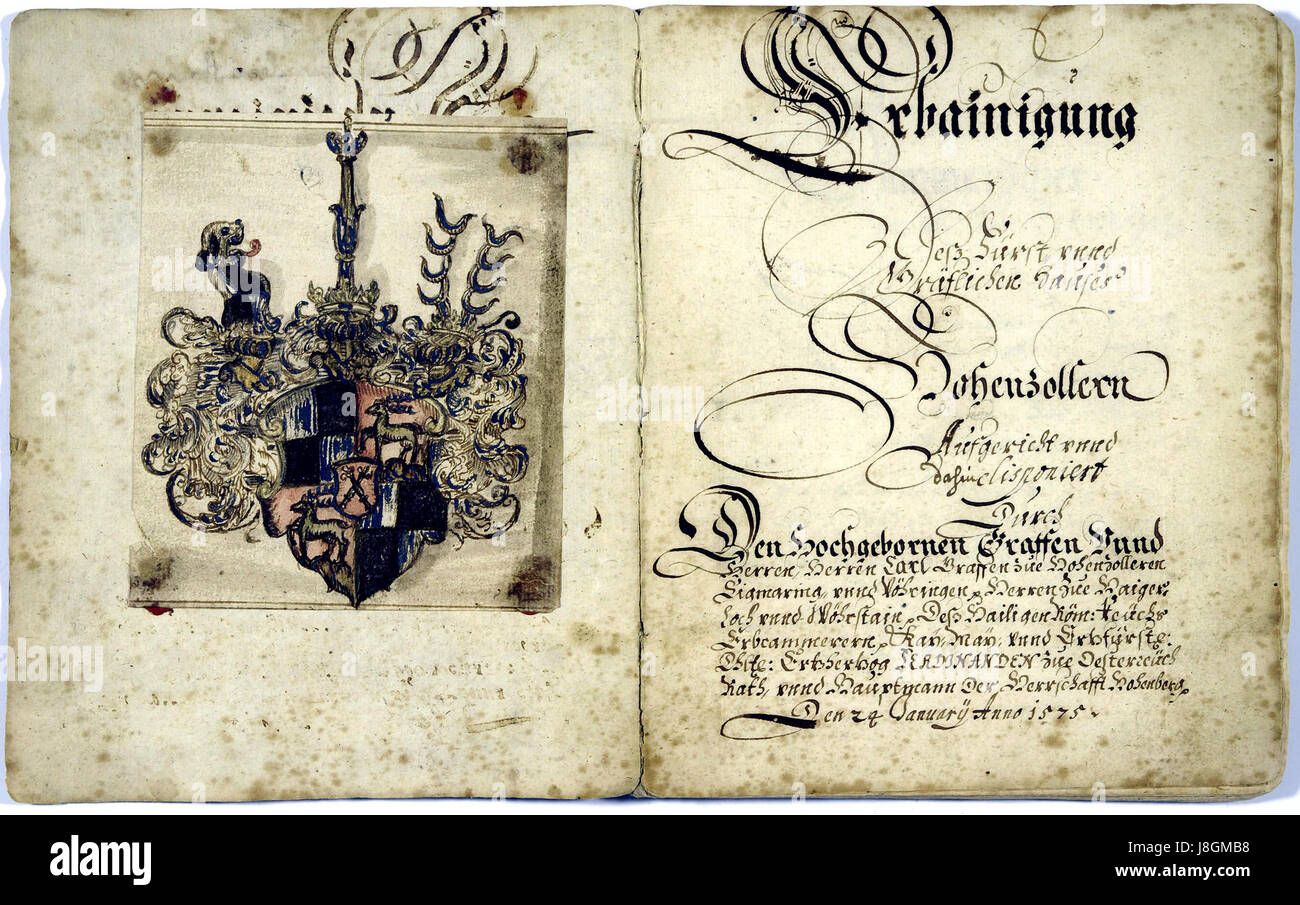 Erbainigung
Desz Fürst vnnd
Gräflichen Hauses
Hohenzollern
Aufgericht vnnd
dahin disponiert
Durch
Den Hochgebornen Graffen Vnnd
Herren, Herren Carl Graffen zue Hohenzolleren
Sigmaring, vnnd Vöhringen, Herren zue Haiger,
loch vnnd Wöhrstain, Desz Hailigen Röm: Reichs
Erbcammerern, Kay: May: vnnd
Ertzhertzog FERDINANDEN zue Oesterreich
Rath, vnnd Hauptmann Der Herrschafft Hohenberg,
Den 24 January Anno 1575.
alamy
Image ID: J8GMB8
www.alamy.com